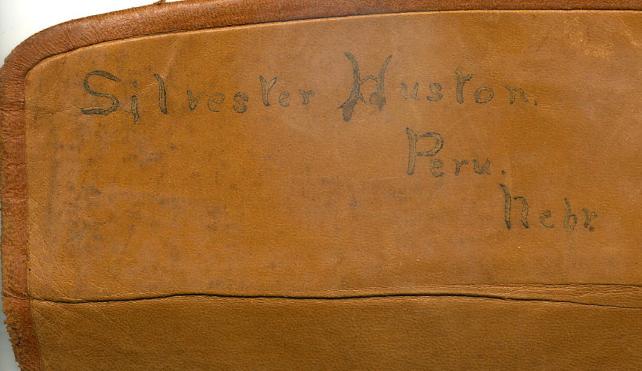 Silvester Huston.
Peru.
Nebr.